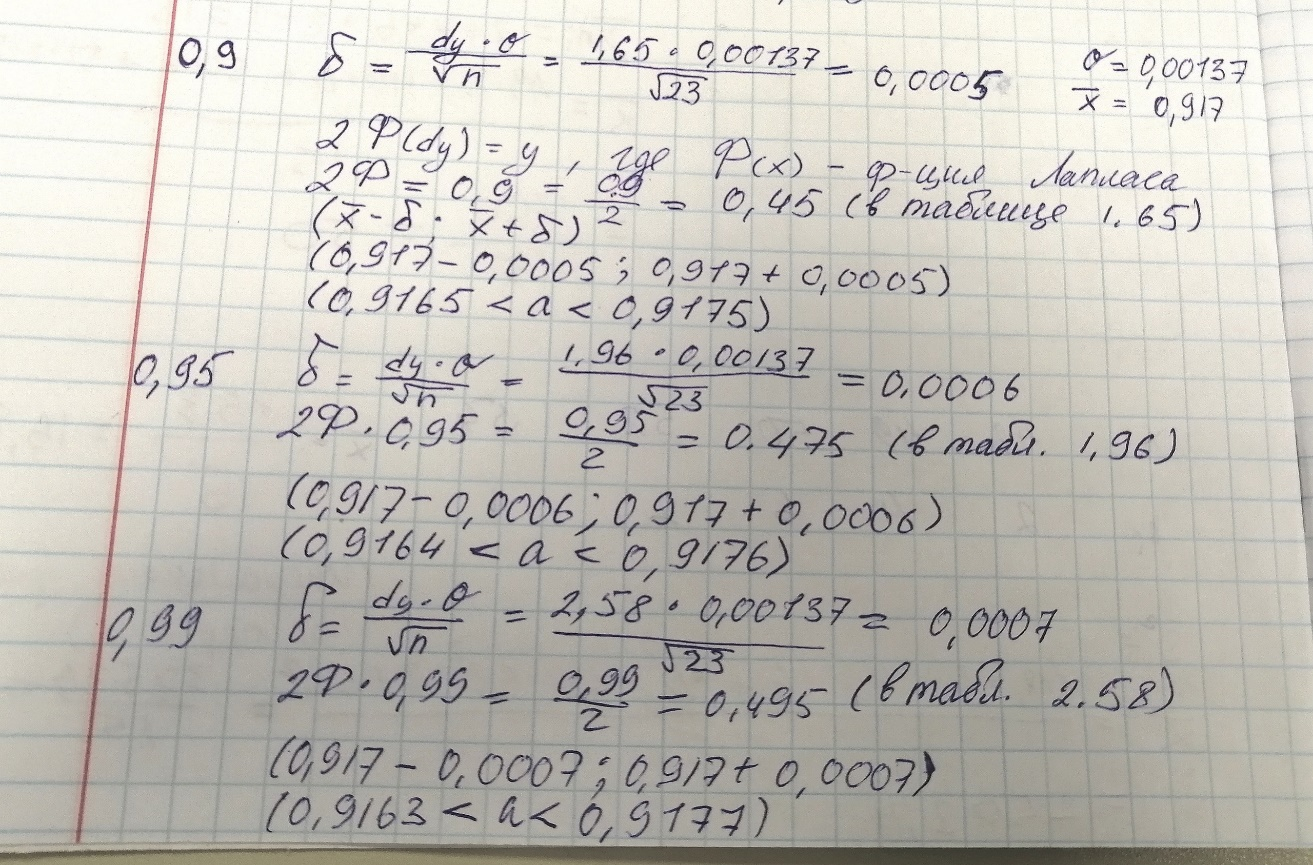 0,9 δ = dy · σ / √n = 1,65 · 0,00137 / √23 = 0,0005 σ = 0,00137
x̅ = 0,917
2Ф(dy) = y, где Ф(x) – ф-ция Лапласа
2Ф = 0,9 = 0,9 / 2 = 0,45 (в таблице 1.65)
(x̅ - δ; x̅ + δ)
(0,917 - 0,0005; 0,917 + 0,0005)
(0,9165 < a < 0,9175)
0,95 δ = dy · σ / √n = 1,96 · 0,00137 / √23 = 0,0006
2Ф · 0,95 = 0,95 / 2 = 0.475 (в табл. 1,96)
(0,917 - 0,0006; 0,917 + 0,0006)
(0,9164 < a < 0,9176)
0,99 δ = dy · σ / √n = 2,58 · 0,00137 / √23 = 0,0007
2Ф · 0,99 = 0,99 / 2 = 0,495 (в табл. 2.58)
(0,917 - 0,0007; 0,917 + 0,0007)
(0,9163 < a < 0,9177)